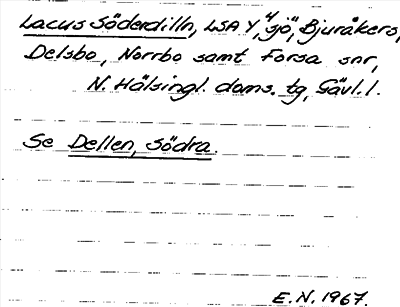 Lacus Söderdilln, LSA Y, "sjö", Bjuråkers,
Delsbo, Norrbo samt Forsa snr,
N. Hälsingl. doms. tg, Gävl. l.
Se Dellen, Södra.
E. N. 1967.